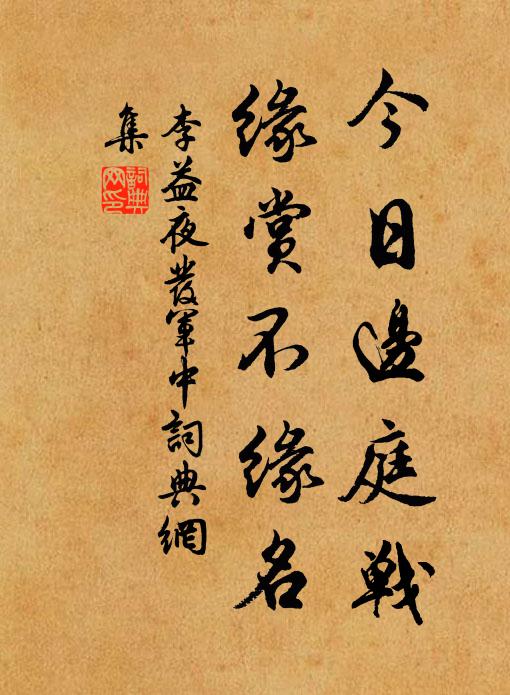 今日邊庭戦
緣賞不緣名
李益夜發軍中詞典網
集
詞典
网印